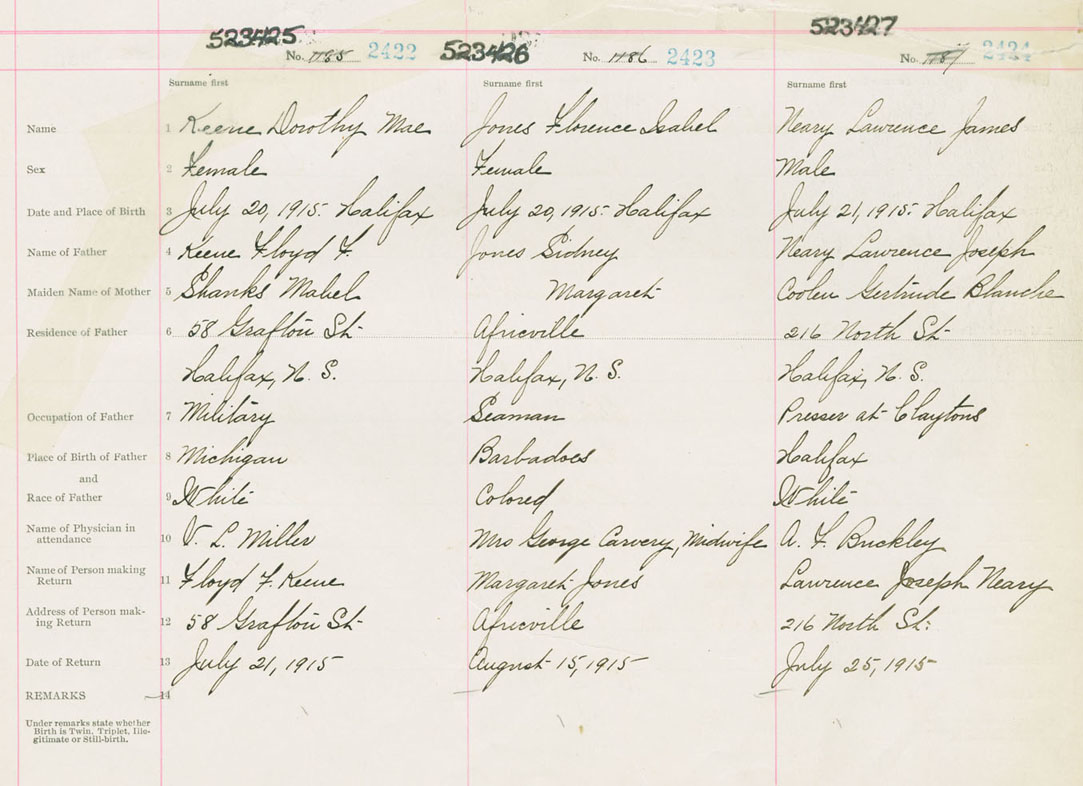 523425 523426 523427
No. 1185 2422 No. 1186 2423 No. 1187 2424
Surname first Surname first Surname first
Name 1 Keene Dorothy Mae Jones Florence Isabel Neary Lawrence James
Sex 2 Female Female Male
Date and Place of Birth 3 July 20, 1915. Halifax July 20, 1915. Halifax July 21, 1915. Halifax
Name of Father 4 Keene Floyd F. Jones Sidney Neary Lawrence Joseph
Maiden Name of Mother 5 Shanks Mabel Margaret Coolen Gertrude Blanche
Residence of Father 6 58 Grafton St. Africville 216 North St.
Halifax, N. S. Halifax, N. S. Halifax, N. S.
Occupation of Father 7 Military Seaman Presser at Claytons
Place of Birth of Father 8 Michigan Barbadoes Halifax
and
Race of Father 9 White Colored White
Name of Physician in
attendance 10 V. L. Miller Mrs George Carvery, Midwife A. F. Buckley
Name of Person making
Return 11 Floyd F. Keene Margaret Jones Lawrence Joseph Neary
Address of Person mak-
ing Return 12 58 Grafton St. Africville 216 North St.
Date of Return 13 July 21, 1915 August 15, 1915 July 25, 1915
REMARKS 14
Under remarks state whether
Birth is Twin, Triplet, Ille-
gitimate or Still-birth.